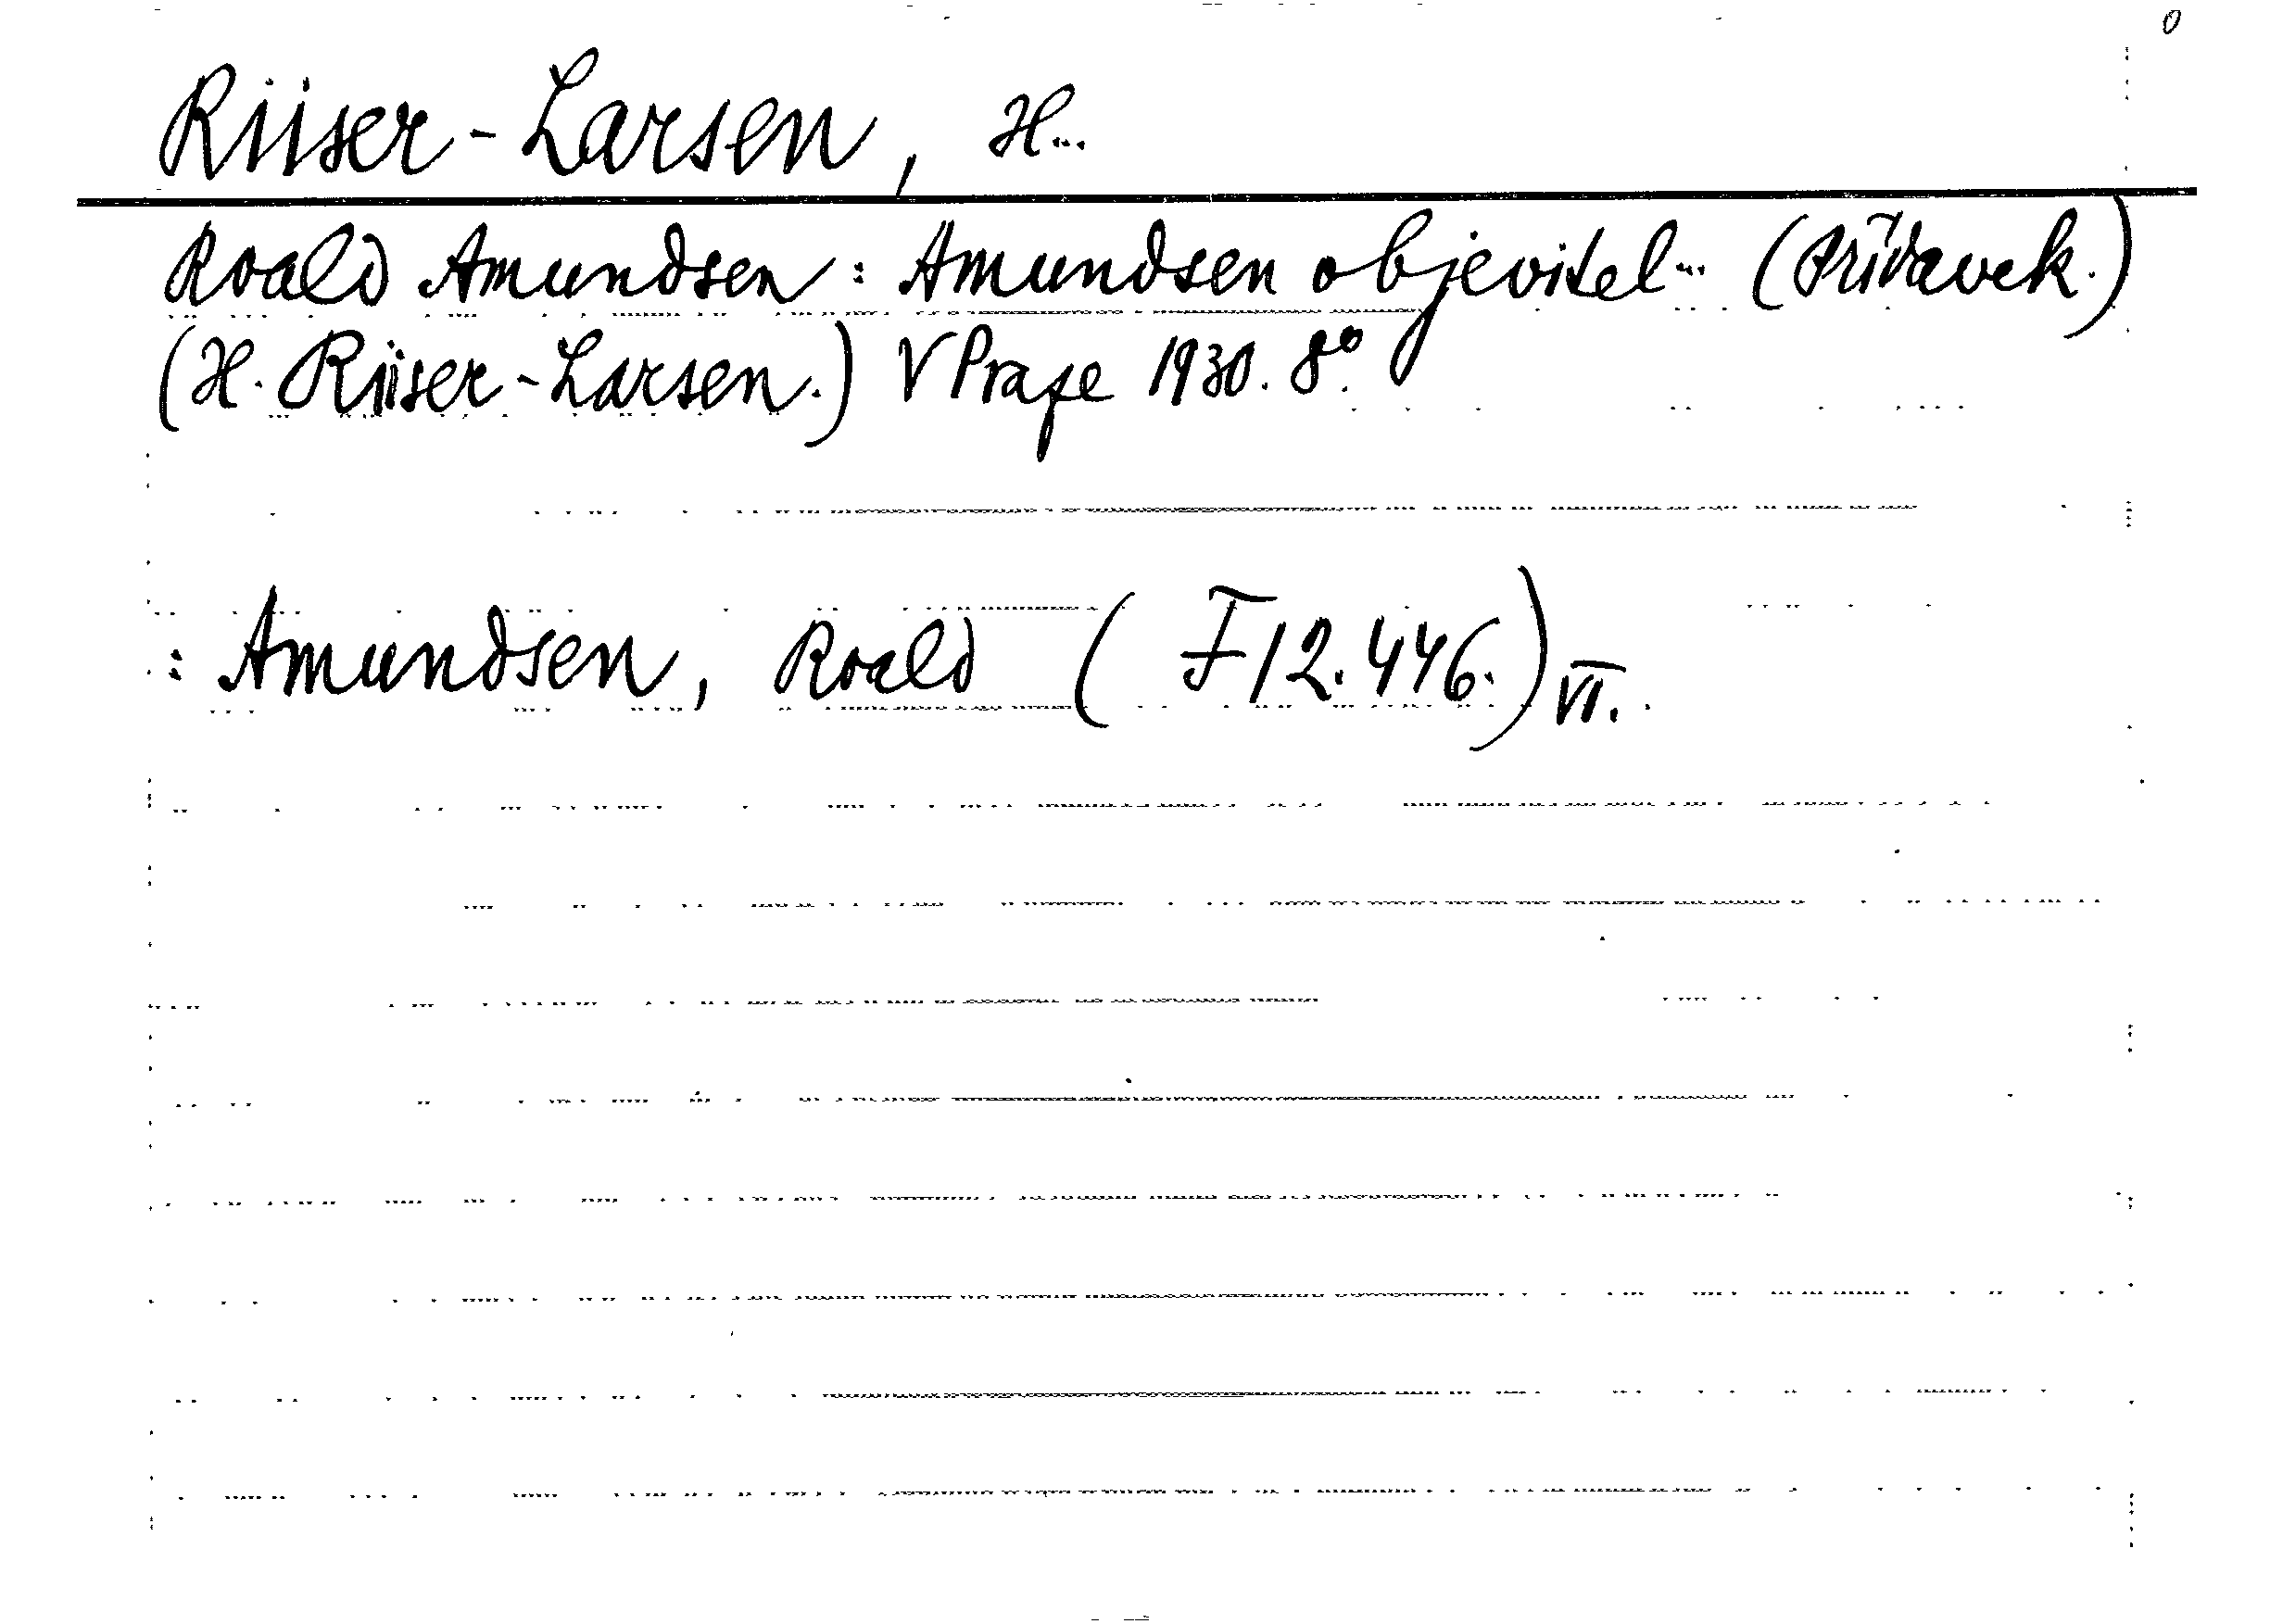 0
Riiser-Larsen, H...
Roald Amundsen: Amundsen objevitel... (Přídavek.)
(H. Riiser-Larsen.) V Praze 1930. 8°.
: Amundsen, Roald ( F 12.446.) VI.